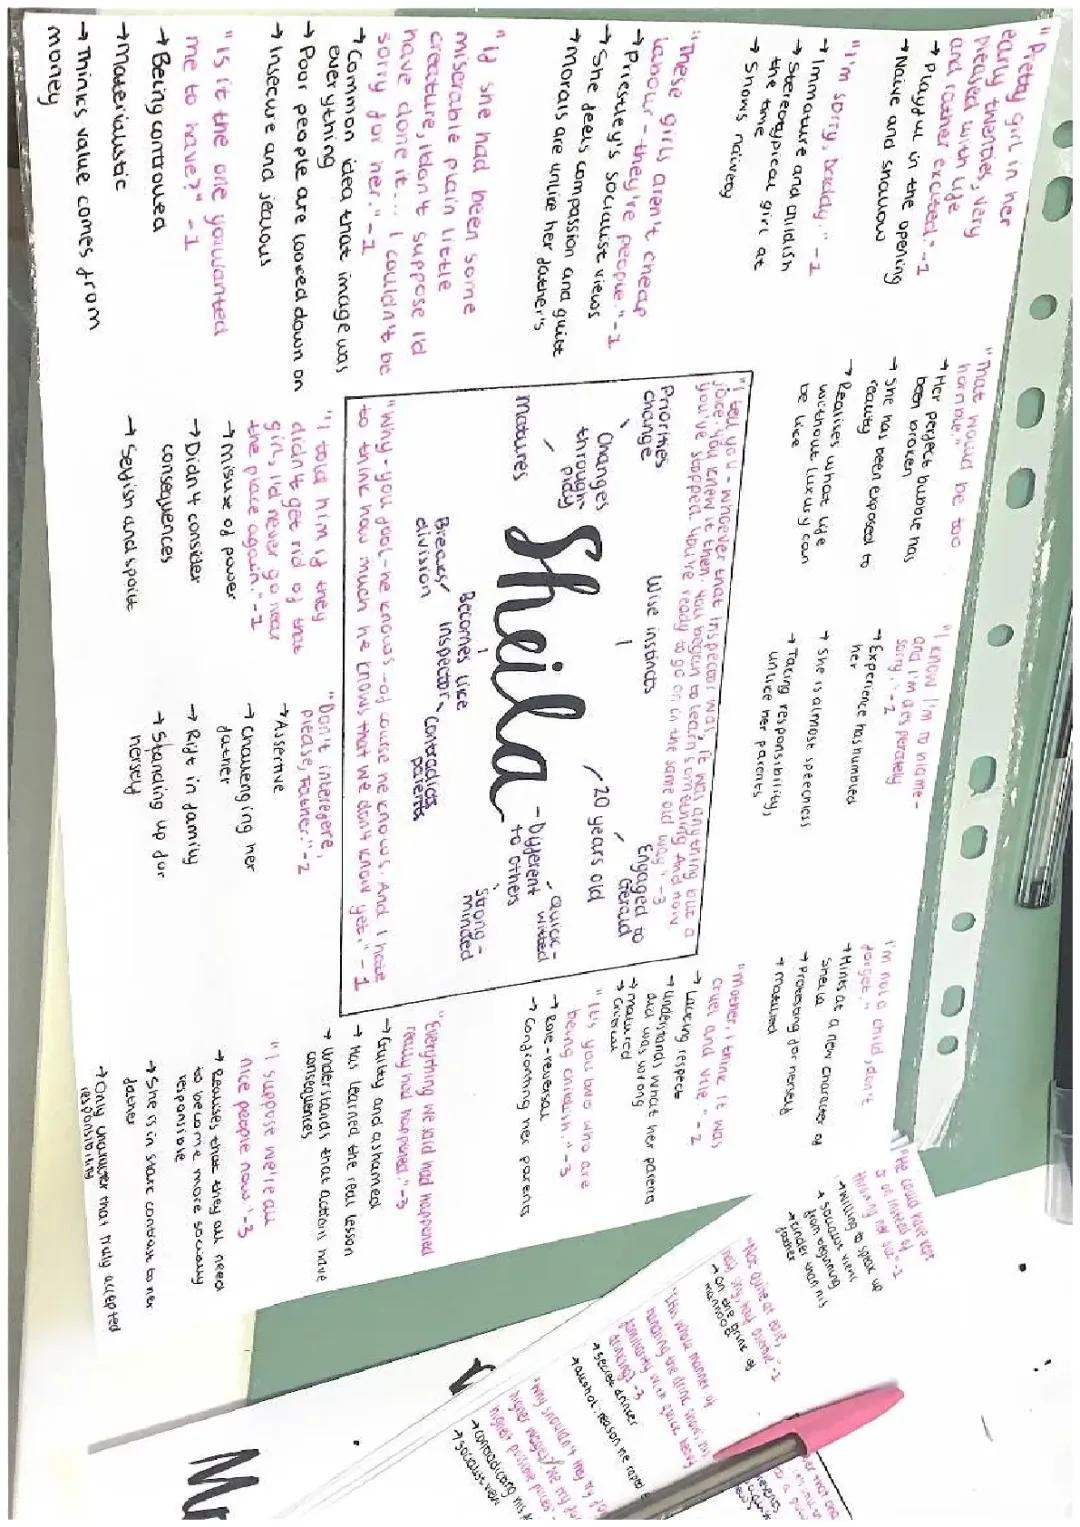 "Pretty girl in her
early twenties, very
pleased with life
and rather excited." -1
→ Playful in the opening
→ Naive and shallow
"I'm sorry, daddy." -1
→ Immature and childish
→ Stereotypical girl at
the time
→ Shows naivety
"These girls aren't cheap
labour - they're people." -1
→ Priestley's socialist views
→ She feels compassion and guilt
→ Morals are unlike her father's
"If she had been some
miserable plain little
creature, I don't suppose I'd
have done it... I couldn't be
sorry for her." -1
→ Common idea that image was
everything
→ Poor people are looked down on
→ Insecure and jealous
"Is it the one you wanted
me to have?" -1
→ Being controlled
→ Materialistic
→ Thinks value comes from
money
"That would be too
horrible."
→ Her perfect bubble has
been broken
→ She has been exposed to
reality
→ Realises what life
without luxury can
be like
"I know I'm to blame -
and I'm desperately
sorry." -1
→ Experience has humbled
her
→ She is almost speechless
→ Taking responsibility,
unlike her parents
I'm not a child, don't
forget."
→ Hints at a new character of
Sheila
→ Protesting for herself
→ Matured
"I tell you - whoever that Inspector was, it was anything but a
joke. You knew it then. You began to learn something. And now
you've stopped. You're ready to go on in the same old way." -3
Priorities
change
Changes
through
play
matures
Wise instincts
20 years old
Engaged to
Gerald
Sheila
- Different
to others
Quick-
witted
Strong-
minded
Becomes like
Inspector
Breaks
division
Contradicts
parents
"Why - you fool - he knows - of course he knows. And I hate
to think how much he knows that we don't know yet." -1
"I told him if they
didn't get rid of that
girl, I'd never go near
the place again." -1
→ Misuse of power
→ Didn't consider
consequences
→ Selfish and spoilt
"Don't interfere,
please, Father." -2
→ Assertive
→ Challenging her
father
→ Rift in family
→ Standing up for
herself
"Mother, I think it was
cruel and vile." -2
→ Lacking respect
→ Understands what her parents
did was wrong
→ Matured
→ Critical
"It's you two who are
being childish." -3
→ Role-reversal
→ Confronting her parents
"Everything we said had happened
really had happened." -3
→ Guilty and ashamed
→ Has learned the real lesson
→ Understands that action have
consequences
"I suppose we're all
nice people now." -3
→ Realises that they all need
to become more socially
responsible
→ She is in stark contrast to her
father
→ Only character that truly accepted
responsibility
"He could have kept
her on instead of
throwing her out." -1
→ Willing to speak up
→ Socialist views
from beginning
→ Kinder than his
father
"Not quite at ease,
half shy, half assertive" -1
→ On the brink of
manhood
"(His whole manner of
handling the drink shows his
familiarity with quick heavy
drinking) -3
→ Secret drinker
→ Alcohol, reason he raped
"Why shouldn't they try for
higher wages? We try for
highest possible prices"
→ Contradicting his
→ Socialist view